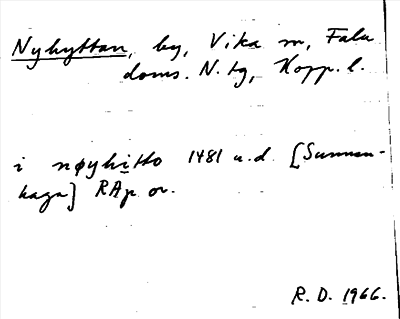 Nyhyttan, by, Vika sn, Falu
doms. N. tg, Kopp. l.
i nøyhitto 1481 u.d. [Sunnan-
haga] RAp or.
R. D. 1966.